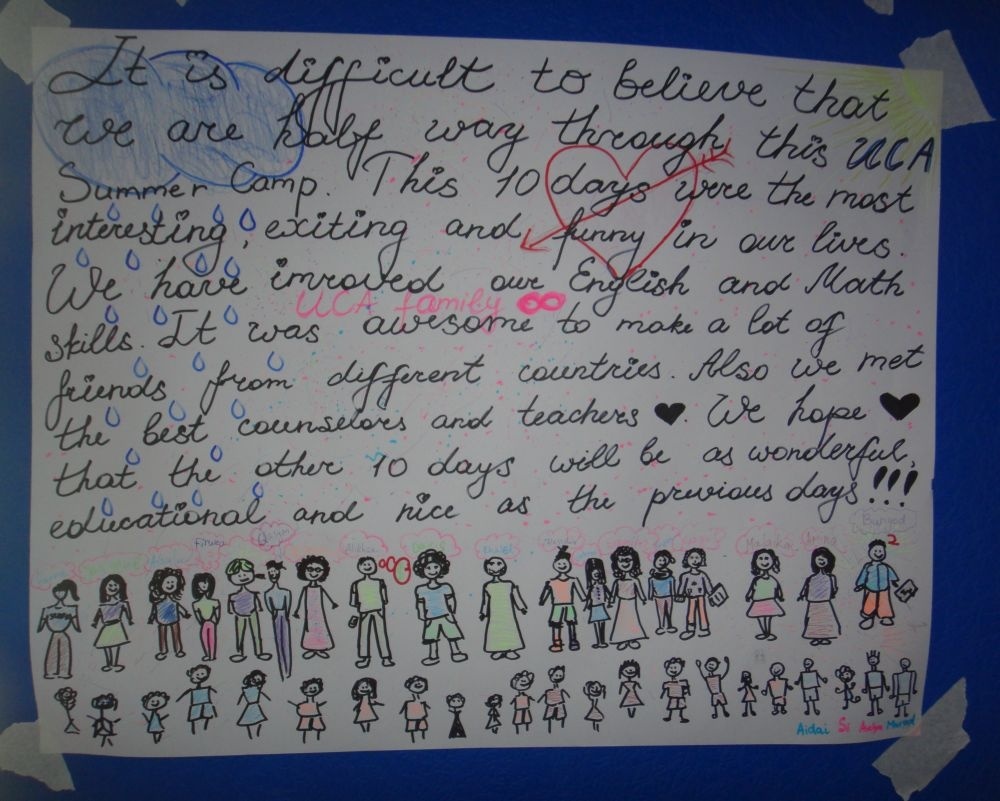 It is difficult to believe that
we are half way through this UCA
Summer Camp. This 10 days were the most
interesting, exiting and funny in our lives.
We have imroved our English and Math
UCA family
skills. It was awesome to make a lot of
friends from different countries. Also we met
the best counselors and teachers ♥. We hope ♥
that the other 10 days will be as wonderful,
educational and nice as the previous days!!!
Bunyod
Malaika Amina
2
Aidai Si